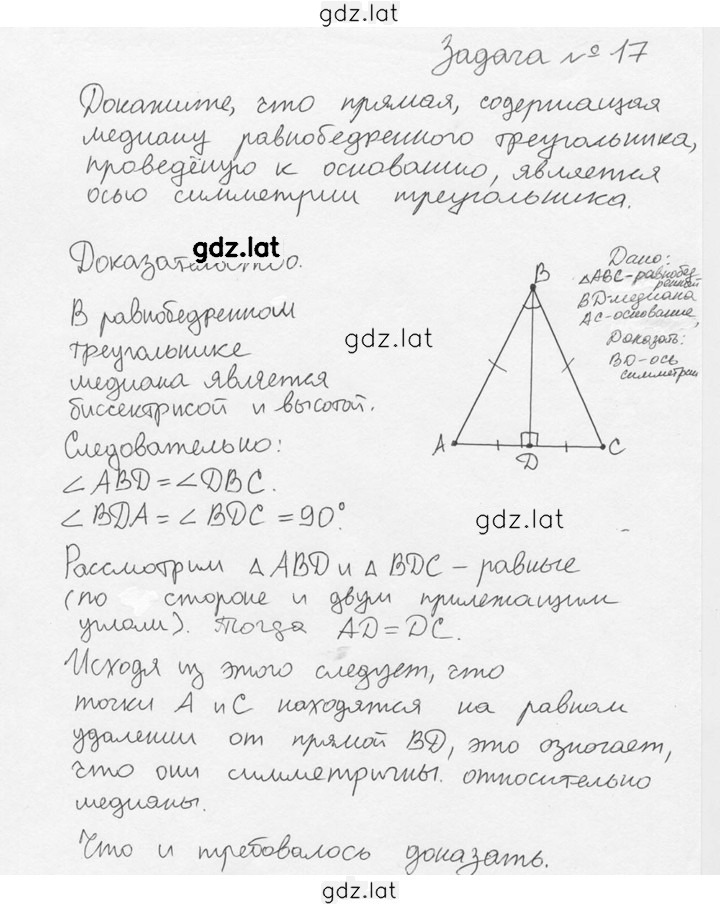 gdz.lat
Задача № 17
Докажите, что прямая, содержащая
медиану равнобедренного треугольника,
проведённую к основанию, является
осью симметрии треугольника.
gdz.lat
Доказательство.
Дано:
△ABC-равнобед-
ренный
BD-медиана
AC-основание,
Доказать:
BD-ось
симметрии
B
A
D
C
В равнобедренном
треугольнике
gdz.lat
медиана является
биссектрисой и высотой.
Следовательно:
∠ABD=∠DBC.
∠BDA=∠BDC=90°.
gdz.lat
Рассмотрим △ABD и △BDC – равные
(по стороне и двум прилежащим
углам). Тогда AD=DC.
Исходя из этого следует, что
точки A и C находятся на равном
удалении от прямой BD, это означает,
что они симметричны относительно
медианы.
Что и требовалось доказать.
gdz.lat